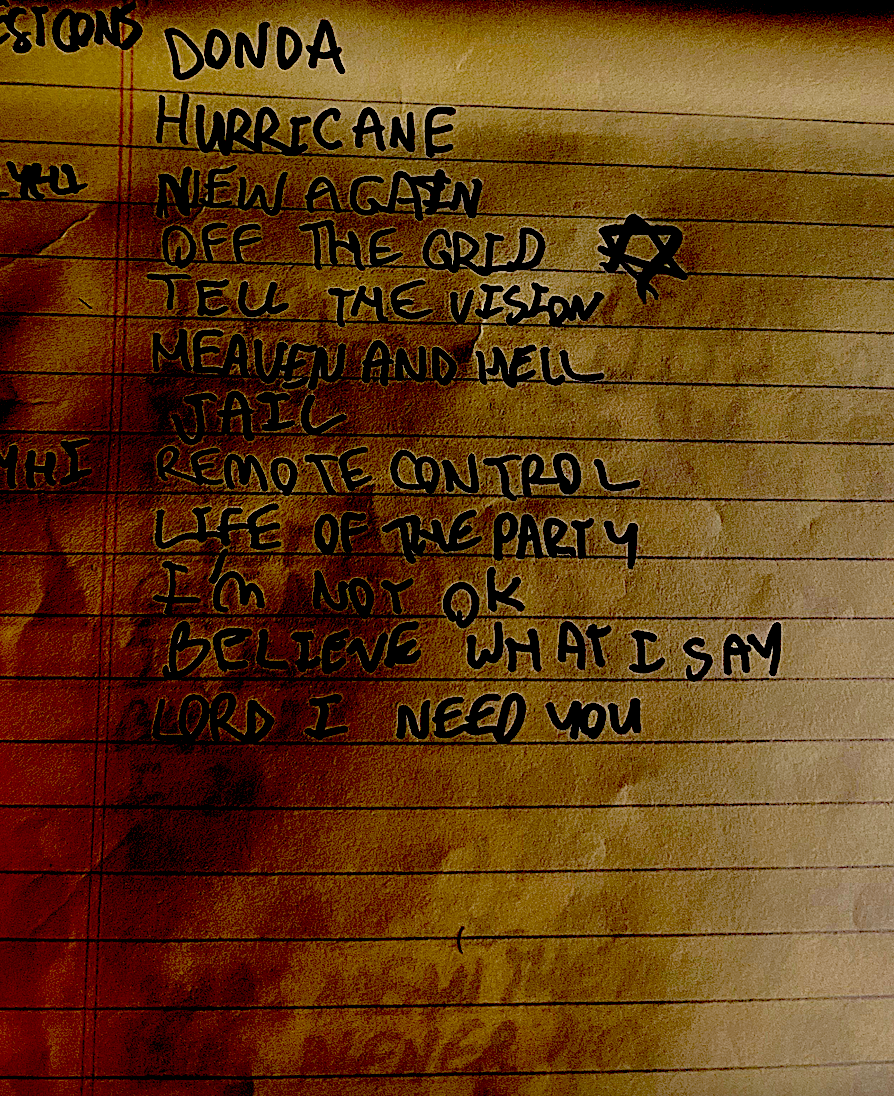 DONDA
HURRICANE
NEW AGAIN
OFF THE GRID
TELL THE VISION
HEAVEN AND HELL
JAIL
YHI REMOTE CONTROL
LIFE OF THE PARTY
I'M NOT OK
BELIEVE WHAT I SAY
LORD I NEED YOU